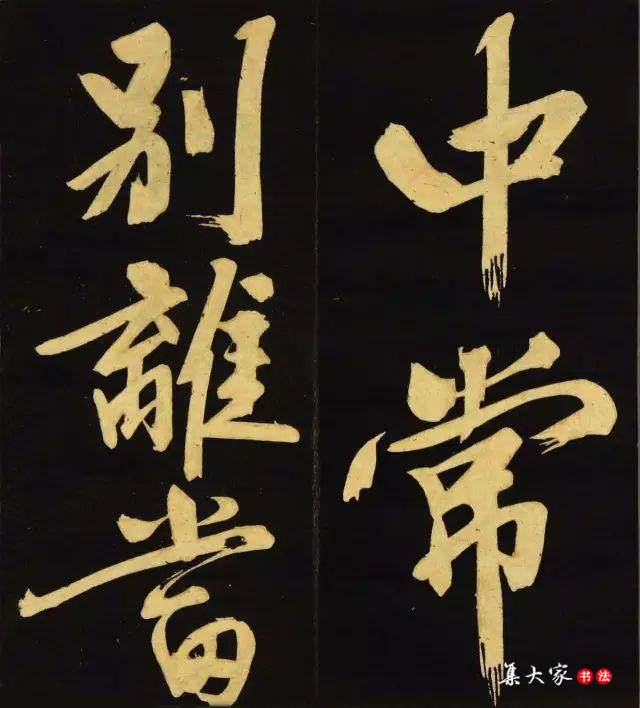 中常
别離當
集大家书法